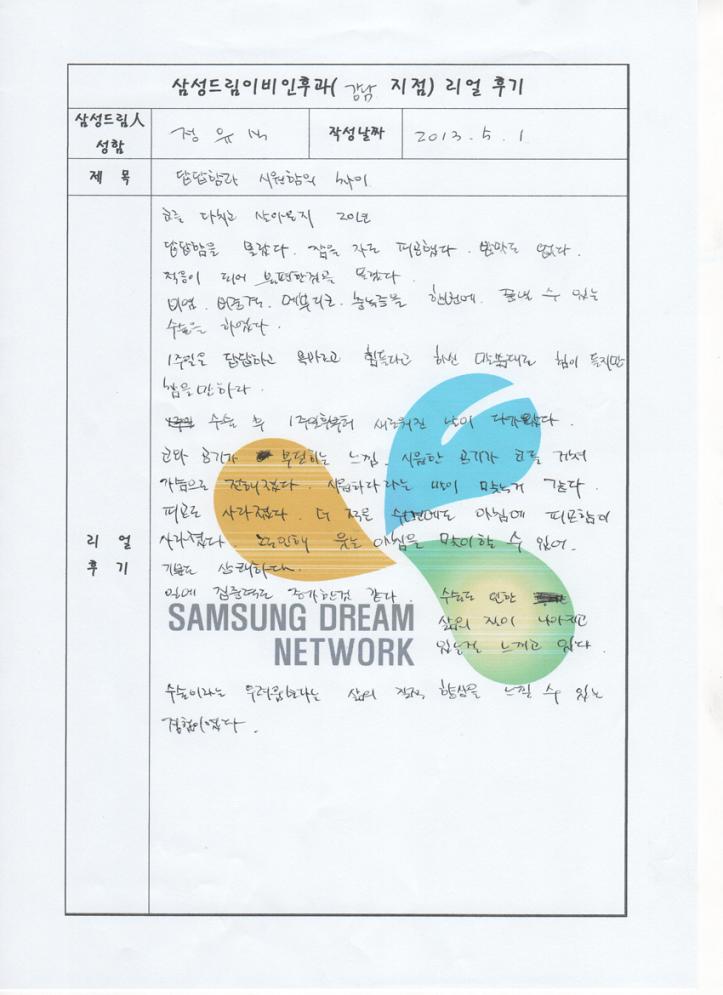 삼성드림이비인후과( 강남 지점) 리얼 후기
삼성드림人
성함
정 유
작성날짜
2013. 5. 1
제 목
답답함과 시원함의 차이
코를 다치고 살아온지 20년
답답함을 몰랐다. 잠을 자도 피곤했다. 밥맛도 없다.
적응이 되어 불편한점을 몰랐다
비염. 비중격. 축농증을 한번에. 끝낼 수 있는
수술을 하였다.
1주일을 답답하고 목마르고 힘들다고 하신 말씀대로 힘이 들지만
참을만 하다.
수술 후 1주일후부터 새로워진 날이 다가왔다.
코와 공기가 부딛히는 느낌. 시원한 공기가 코를 거쳐
가슴으로 전해졌다. 시원하다라는 말이 맞는거 같다.
피로도 사라졌다. 더 적은 수면에도 아침에 피곤함이
사라졌다. 그로인해 웃는 아침을 맞이할 수 있어.
기분도 상쾌하다.
일에 집중력도 증가한것 같다.
수술로 인한
삶의 질이 나아지고
있는걸 느끼고 있다.
SAMSUNG DREAM
NETWORK
리 얼
후 기
수술이라는 두려움보다는 삶의 질적 향상을 느낄 수 있는
경험이었다.